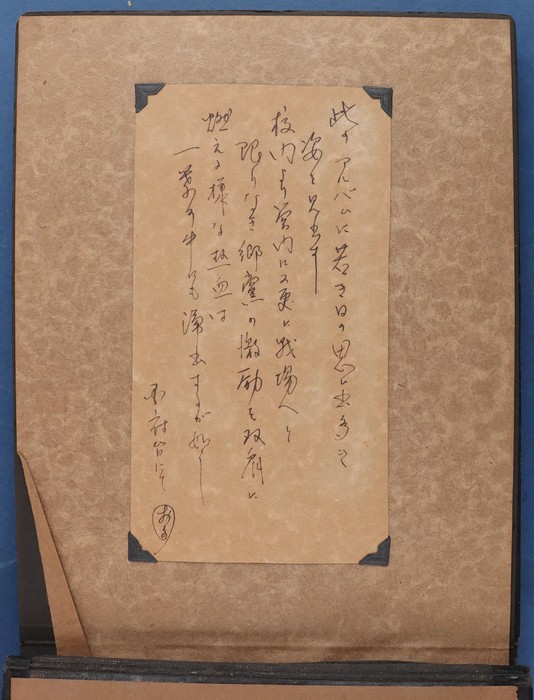 此のアルバムに若き日の思ひ出多き
姿を見出す
校内より営内に又更に戦場へと
限りなき郷党の激励を双肩に
燃える様な熱血は
一葉の中にも湧出するが如し
国府台にて